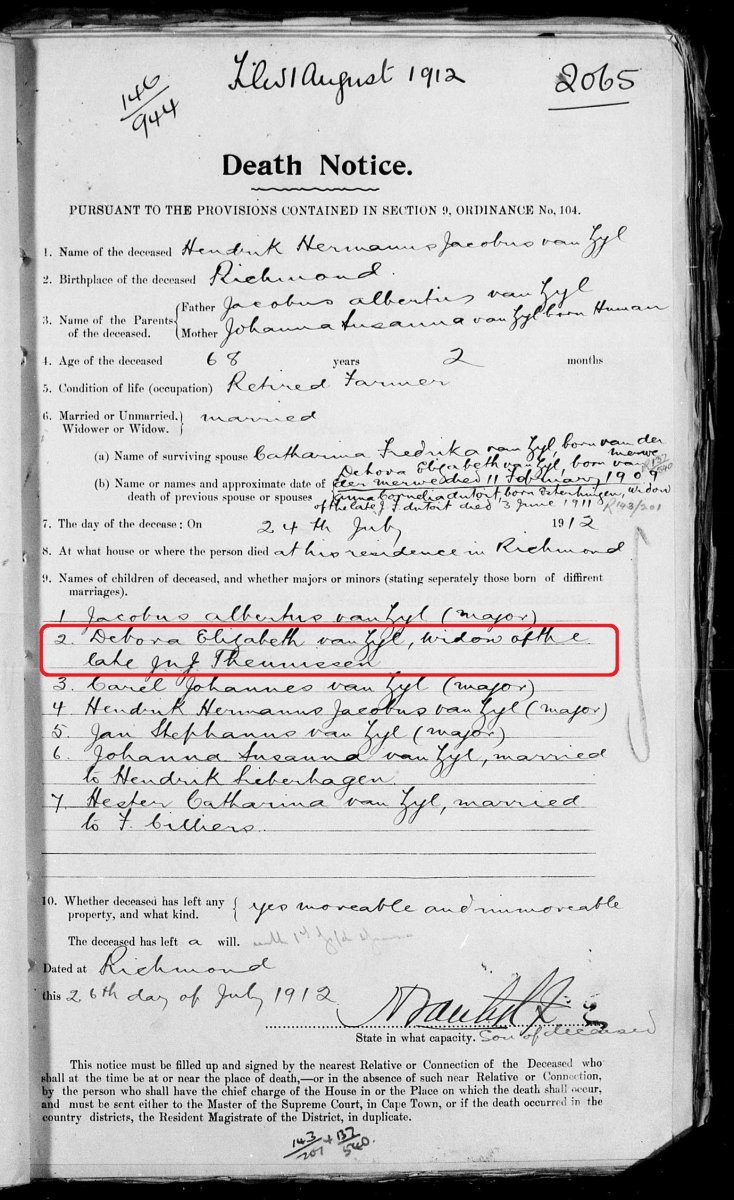 146/944
Filed 1 August 1912
2065
Death Notice.
PURSUANT TO THE PROVISIONS CONTAINED IN SECTION 9, ORDINANCE No, 104.
1. Name of the deceased Hendrik Hermanus Jacobus van Zyl
2. Birthplace of the deceased Richmond.
3. Name of the Parents of the deceased. { Father Jacobus albertus van Zyl
Mother Johanna Susanna van Zyl born Human
4. Age of the deceased 68 years 2 months
5. Condition of life (occupation) Retired Farmer
6. Married or Unmarried. Widower or Widow. } married
(a) Name of surviving spouse Catharina Fredrika van Zyl, born van der merwe
(b) Name or names and approximate date of death of previous spouse or spouses Debora Elizabeth van Zyl, born van
der merwe died 11 February 1909 R132/540
Anna Cornelia du toit, born Esterhuizen, widow
of the late J. F. du toit died 3 June 1911 R143/201
7. The day of the decease: On 24th July 1912
8. At what house or where the person died at his residence in Richmond
9. Names of children of deceased, and whether majors or minors (stating seperately those born of diffirent
marriages).
1 Jacobus albertus van Zyl (major)
2. Debora Elizabeth van Zyl, widow of the
late J. Theunissen
3. Carel Johannes van Zyl (major)
4 Hendrik Hermanus Jacobus van Zyl (major)
5 Jan Stephanus van Zyl (major)
6. Johanna Susanna van Zyl, married
to Hendrik Lieberhagen
7 Hester Catharina van Zyl, married
to F. Cilliers.
10. Whether deceased has left any property, and what kind. { yes moveable and immoveable
The deceased has left a will.
Dated at Richmond
this 26th day of July 1912
State in what capacity. Son of deceased
This notice must be filled up and signed by the nearest Relative or Connection of the Deceased who
shall at the time be at or near the place of death,—or in the absence of such near Relative or Connection,
by the person who shall have the chief charge of the House in or the Place on which the death shall occur,
and must be sent either to the Master of the Supreme Court, in Cape Town, or if the death occurred in the
country districts, the Resident Magistrate of the District, in duplicate.
143/201 + 132/540.